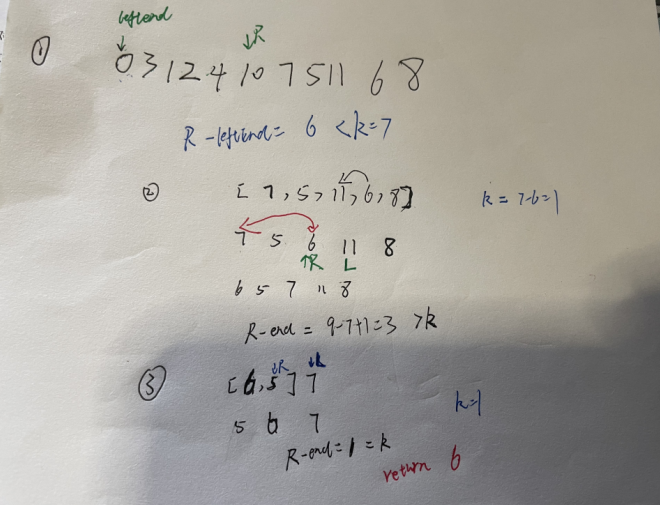 leftend
↓ ↓R
① 0 3 1 2 4 10 7 5 11 6 8
R - leftend = 6 < k=7
② [ 7 , 5 , 11 , 6 , 8 ] k = 7-6=1
7 5 6 11 8
↑R L
6 5 7 11 8
R-end = 9-7+1=3 >k
↓R ↓L
③ [6,5] 7
k=1
5 6 7
R-end=1=k
return 6